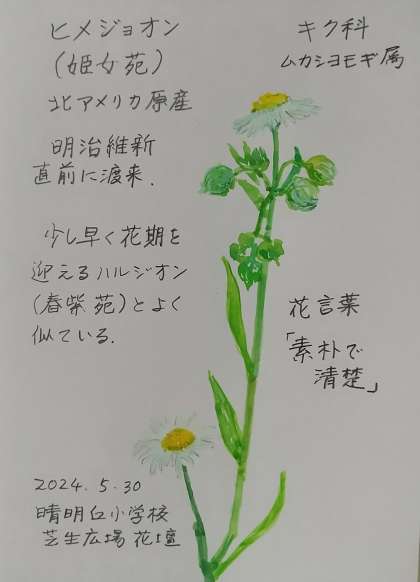 ヒメジョオン
(姫女苑)
北アメリカ原産
明治維新
直前に渡来.
少し早く花期を
迎えるハルジオン
(春紫苑)とよく
似ている.
キク科
ムカシヨモギ属
花言葉
「素朴で
清楚」
2024.5.30
晴明丘小学校
芝生広場 花壇